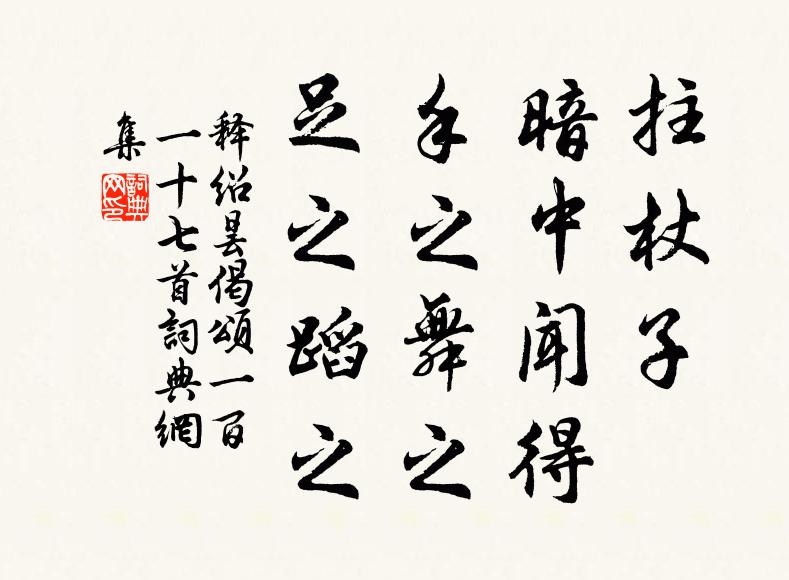 拄杖子
暗中闻得
手之舞之
足之蹈之
释绍昙偈颂一百
一十七首詞典網
集
詞典
网印